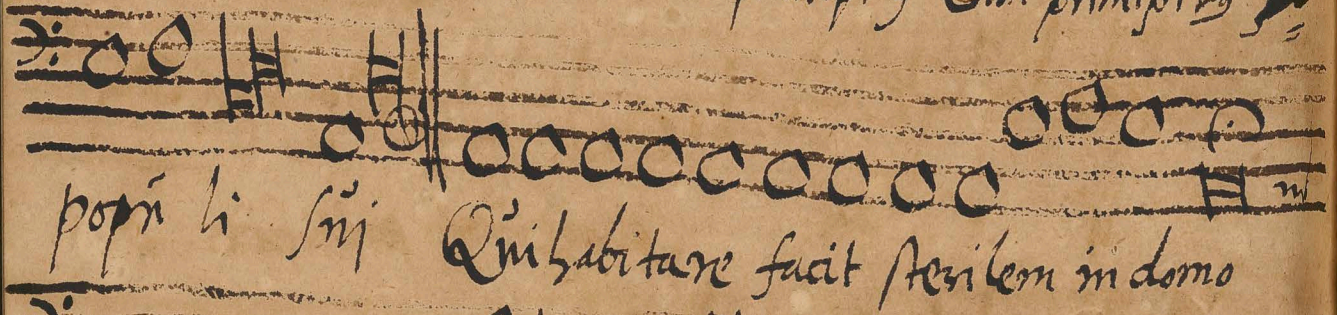 cum principibus
popu li sui Qui habitare facit sterilem in domo